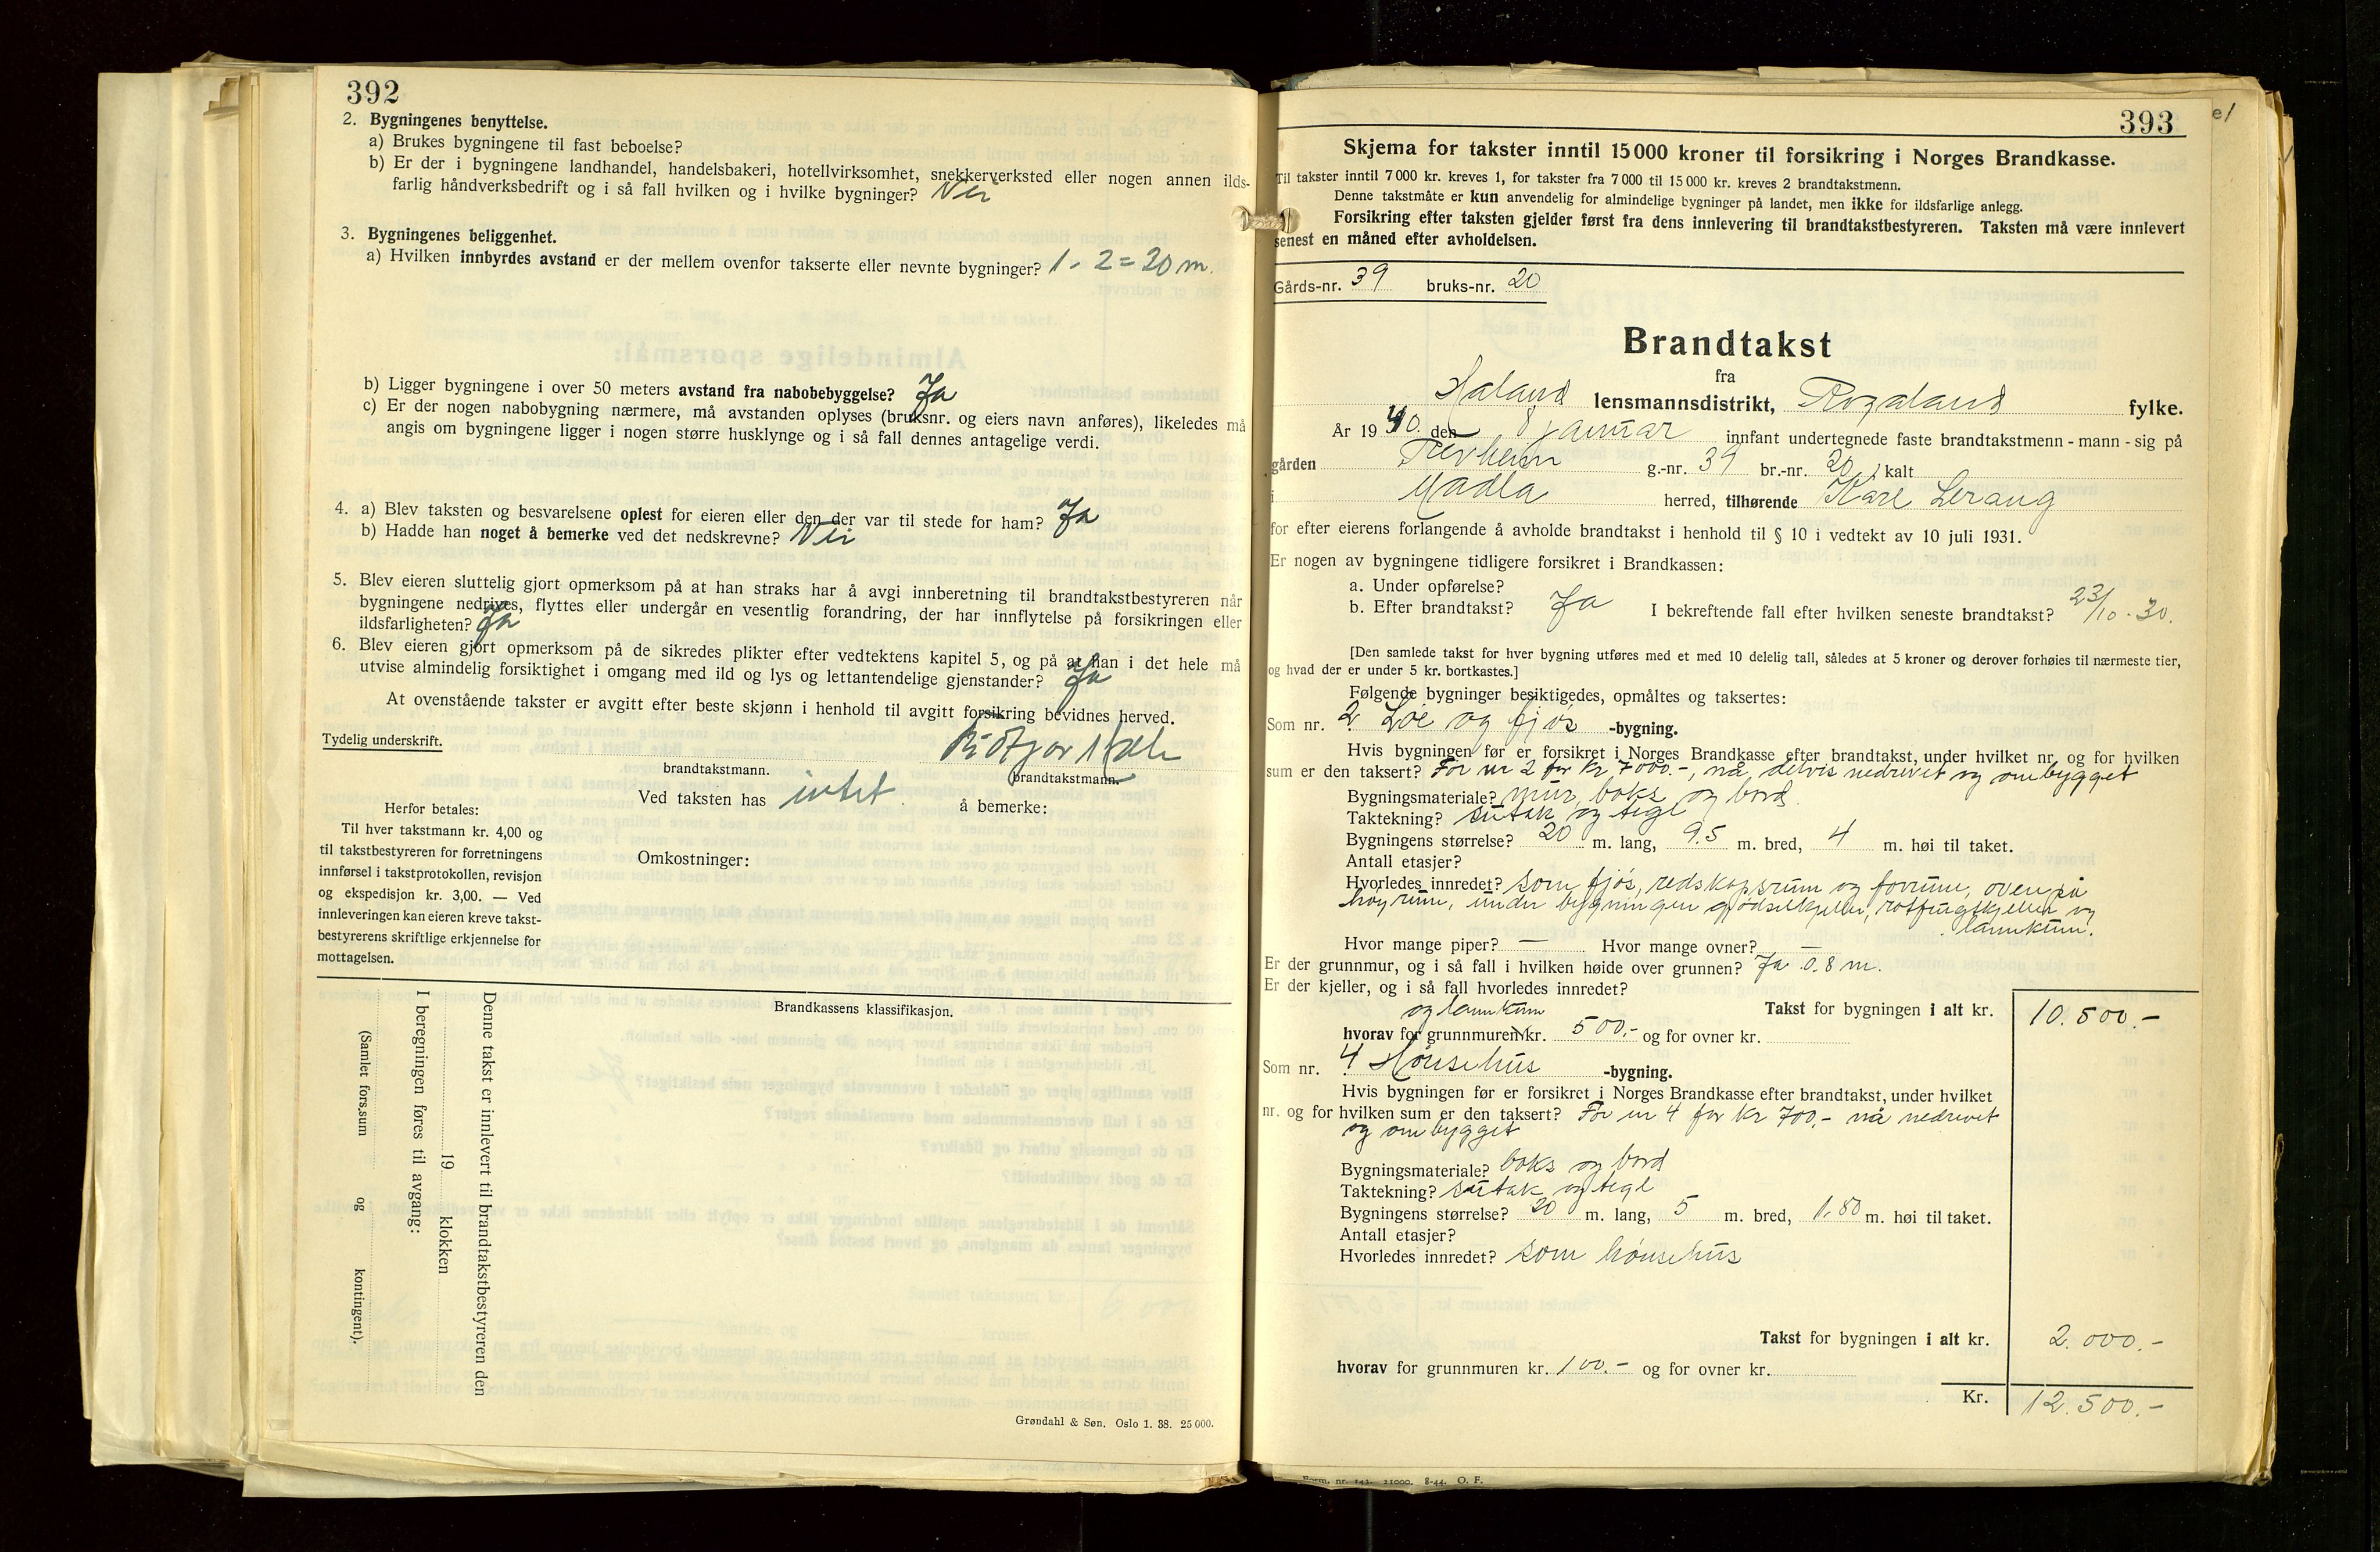 392
2. Bygningenes benyttelse.
a) Brukes bygningene til fast beboelse?
b) Er der i bygningene landhandel, handelsbakeri, hotellvirksomhet, snekkerverksted eller nogen annen ilds-
farlig håndverksbedrift og i så fall hvilken og i hvilke bygninger? Nei
3. Bygningenes beliggenhet.
a) Hvilken innbyrdes avstand er der mellem ovenfor takserte eller nevnte bygninger? 1 - 2 = 20 m.
b) Ligger bygningene i over 50 meters avstand fra nabobebyggelse? Ja
c) Er der nogen nabobygning nærmere, må avstanden oplyses (bruksnr. og eiers navn anføres), likeledes må
angis om bygningene ligger i nogen større husklynge og i så fall dennes antagelige verdi.
4. a) Blev taksten og besvarelsene oplest for eieren eller den der var til stede for ham? Ja
b) Hadde han noget å bemerke ved det nedskrevne? Nei
5. Blev eieren sluttelig gjort opmerksom på at han straks har å avgi innberetning til brandtakstbestyreren når
bygningene nedrives, flyttes eller undergår en vesentlig forandring, der har innflytelse på forsikringen eller
ildsfarligheten? Ja
6. Blev eieren gjort opmerksom på de sikredes plikter efter vedtektens kapitel 5, og på at han i det hele må
utvise almindelig forsiktighet i omgang med ild og lys og lettantendelige gjenstander? Ja
At ovenstående takster er avgitt efter beste skjønn i henhold til avgitt forsikring bevidnes herved.
Tydelig underskrift.
brandtakstmann. brandtakstmann.
Ved taksten has intet å bemerke:
Herfor betales:
Til hver takstmann kr. 4,00 og
til takstbestyreren for forretningens
innførsel i takstprotokollen, revisjon
og ekspedisjon kr. 3,00. — Ved
innleveringen kan eieren kreve takst-
bestyrerens skriftlige erkjennelse for
mottagelsen.
Omkostninger:
Brandkassens klassifikasjon.
Denne takst er innlevert til brandtakstbestyreren den
19 klokken
I beregningen føres til avgang:
(Samlet fors.sum og kontingent).
Grøndahl & Søn. Oslo 1. 38. 25 000.
393
Skjema for takster inntil 15 000 kroner til forsikring i Norges Brandkasse.
Til takster inntil 7 000 kr. kreves 1, for takster fra 7 000 til 15 000 kr. kreves 2 brandtakstmenn.
Denne takstmåte er kun anvendelig for almindelige bygninger på landet, men ikke for ildsfarlige anlegg.
Forsikring efter taksten gjelder først fra dens innlevering til brandtakstbestyreren. Taksten må være innlevert
senest en måned efter avholdelsen.
Gårds-nr. 39 bruks-nr. 20
Brandtakst
fra
Haland lensmannsdistrikt, Rogaland fylke.
År 1940. den 8 januar innfant undertegnede faste brandtakstmenn - mann - sig på
gården g.-nr. 39 br.-nr. 20, kalt
i Madla herred, tilhørende Kåre Lerang
for efter eierens forlangende å avholde brandtakst i henhold til § 10 i vedtekt av 10 juli 1931.
Er nogen av bygningene tidligere forsikret i Brandkassen:
a. Under opførelse?
b. Efter brandtakst? Ja I bekreftende fall efter hvilken seneste brandtakst? 23/10 - 30.
[Den samlede takst for hver bygning utføres med et med 10 delelig tall, således at 5 kroner og derover forhøies til nærmeste tier,
og hvad der er under 5 kr. bortkastes.]
Følgende bygninger besiktigedes, opmåltes og taksertes:
Som nr. 2 Løe og fjøs -bygning.
Hvis bygningen før er forsikret i Norges Brandkasse efter brandtakst, under hvilket nr. og for hvilken
sum er den taksert? Før nr 2 for kr 7000.-, nå, delvis nedrevet og ombygget
Bygningsmateriale? mur, boks og bord
Taktekning? sutak og tegl
Bygningens størrelse? 20 m. lang, 9.5 m. bred, 4 m. høi til taket.
Antall etasjer?
Hvorledes innredet? som fjøs, redskapsrum og forrum, oven på
høyrum, under bygningen gjødselkjeller, rotfrugtkjeller og
lannkum.
Hvor mange piper? — Hvor mange ovner? —
Er der grunnmur, og i så fall i hvilken høide over grunnen? Ja 0.8 m.
Er der kjeller, og i så fall hvorledes innredet?
Takst for bygningen i alt kr. 10.500.-
og lannkum
hvorav for grunnmuren kr. 500.- og for ovner kr.
Som nr. 4 Hønsehus -bygning.
Hvis bygningen før er forsikret i Norges Brandkasse efter brandtakst, under hvilket
nr. og for hvilken sum er den taksert? Før nr 4 for kr 700.- nå nedrevet
og ombygget
Bygningsmateriale? boks og bord
Taktekning? sutak og tegl
Bygningens størrelse? 20 m. lang, 5 m. bred, 1.80 m. høi til taket.
Antall etasjer?
Hvorledes innredet? som hønsehus
Takst for bygningen i alt kr. 2.000.-
hvorav for grunnmuren kr. 100.- og for ovner kr.
Kr. 12.500.-
Form. nr. 143. 21000. 8-44. O. F.